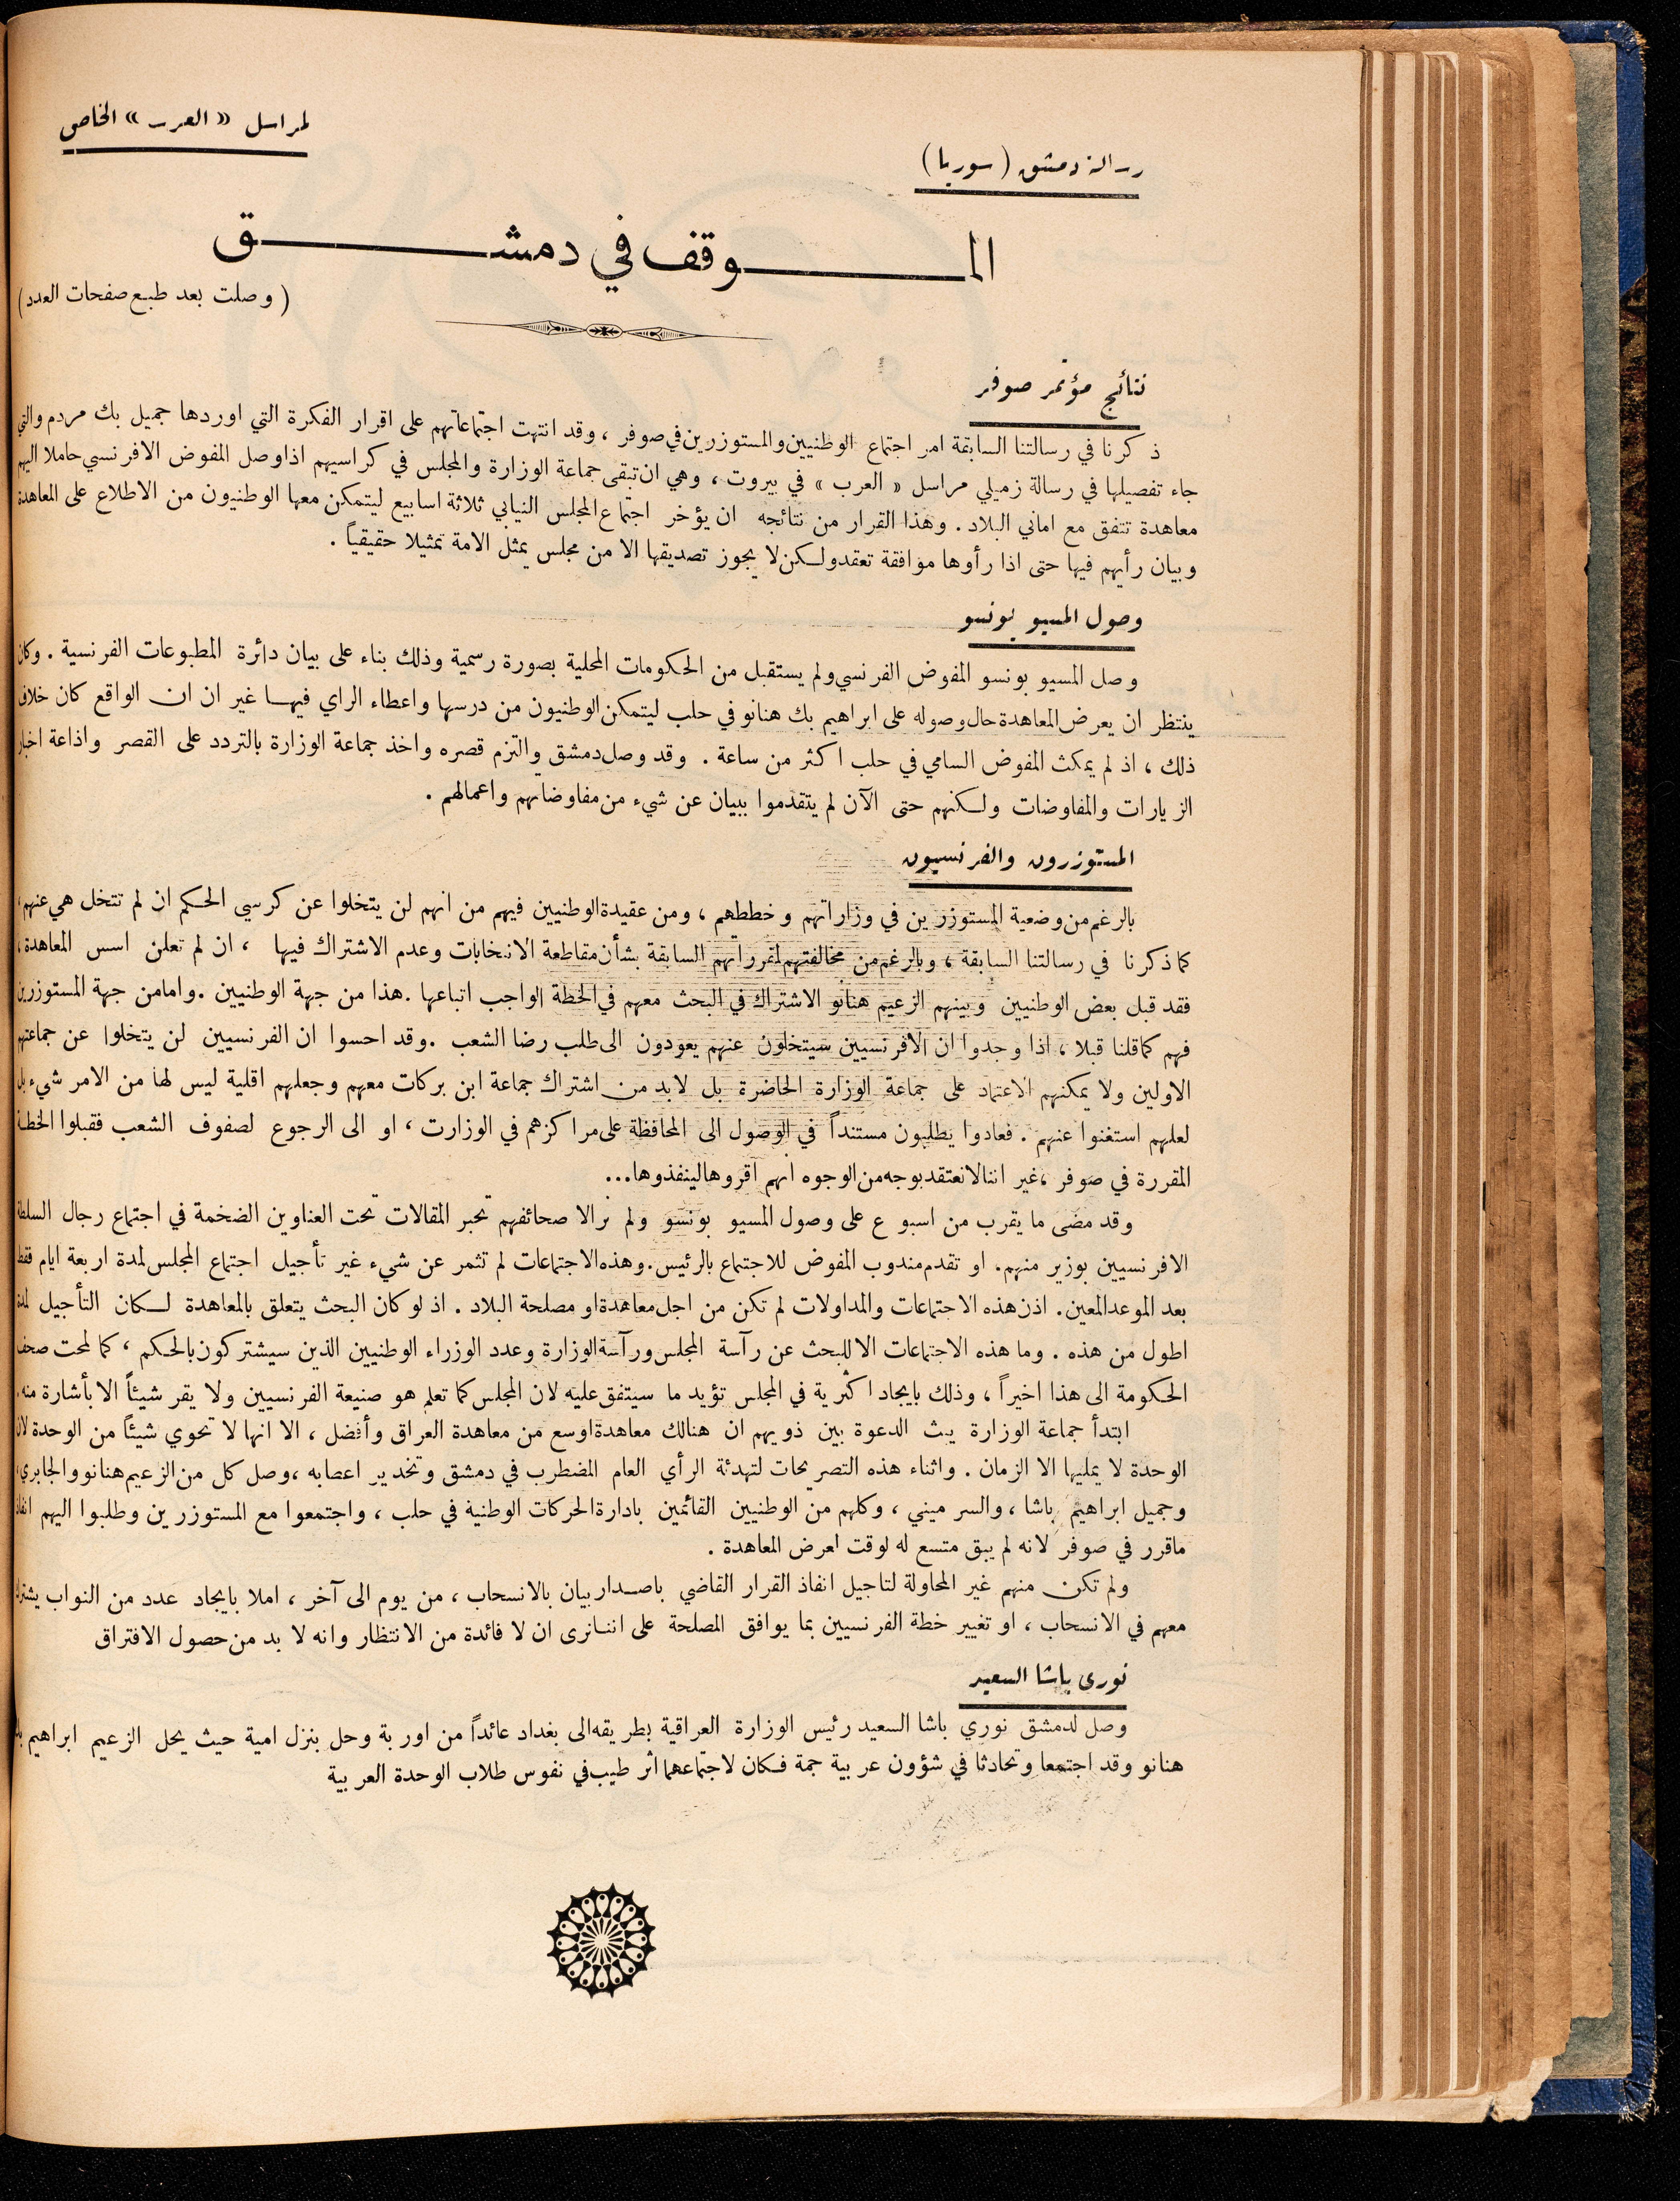 رسالة دمشق (سوريا)
لمراسل « العرب » الخاص
المـوقف في دمشـق
( وصلت بعد طبع صفحات العدد )
نتائج مؤتمر صوفر
ذكرنا في رسالتنا السابقة امر اجتماع الوطنيين والمستوزرين في صوفر ، وقد انتهت اجتماعاتهم على اقرار الفكرة التي اوردها جميل بك مردم والتي
جاء تفصيلها في رسالة زميلي مراسل « العرب » في بيروت ، وهي ان تبقى جماعة الوزارة والمجلس في كراسيهم اذا وصل المفوض الافرنسي حاملا اليهم
معاهدة تتفق مع اماني البلاد . وهذا القرار من نتائجه ان يؤخر اجتماع المجلس النيابي ثلاثة اسابيع ليتمكن معها الوطنيون من الاطلاع على المعاهدة
وبيان رأيهم فيها حتى اذا رأوها موافقة تعقد ولكن لا يجوز تصديقها الا من مجلس يمثل الامة تمثيلا حقيقياً .
وصول المسيو بونسو
وصل المسيو بونسو المفوض الفرنسي ولم يستقبل من الحكومات المحلية بصورة رسمية وذلك بناء على بيان دائرة المطبوعات الفرنسية . وكان
ينتظر ان يعرض المعاهدة حال وصوله على ابراهيم بك هنانو في حلب ليتمكن الوطنيون من درسها واعطاء الراي فيها غير ان ان الواقع كان خلاف
ذلك ، اذ لم يمكث المفوض السامي في حلب اكثر من ساعة . وقد وصل دمشق والتزم قصره واخذ جماعة الوزارة بالتردد على القصر واذاعة اخبار
الزيارات والمفاوضات ولكنهم حتى الآن لم يتقدموا ببيان عن شيء من مفاوضاتهم واعمالهم .
المستوزرون والفرنسيون
بالرغم من وضعية المستوزرين في وزاراتهم وخططهم ، ومن عقيدة الوطنيين فيهم من انهم لن يتخلوا عن كرسي الحكم ان لم تتخل هي عنهم ،
كما ذكرنا في رسالتنا السابقة ، وبالرغم من مخالفتهم لمقرراتهم السابقة بشأن مقاطعة الانتخابات وعدم الاشتراك فيها ، ان لم تعلن اسس المعاهدة ،
فقد قبل بعض الوطنيين وبينهم الزعيم هنانو الاشتراك في البحث معهم في الخطة الواجب اتباعها . هذا من جهة الوطنيين . واما من جهة المستوزرين
فهم كما قلنا قبلا ، اذا وجدوا ان الافرنسيين سيتخلون عنهم يعودون الى طلب رضا الشعب . وقد احسوا ان الفرنسيين لن يتخلوا عن جماعتهم
الاولين ولا يمكنهم الاعتماد على جماعة الوزارة الحاضرة بل لا بد من اشتراك جماعة ابن بركات معهم وجعلهم اقلية ليس لها من الامر شيء بل
لعلهم استغنوا عنهم . فعادوا يطلبون مستنداً في الوصول الى المحافظة على مراكزهم في الوزارت ، او الى الرجوع لصفوف الشعب فقبلوا الخطة
المقررة في صوفر ، غير اننا لا نعتقد بوجه من الوجوه انهم اقروها لينفذوها ...
وقد مضى ما يقرب من اسبوع على وصول المسيو بونسو ولم تزالا صحائفهم تحبر المقالات تحت العناوين الضخمة في اجتماع رجال السلطة
الافرنسيين بوزير منهم . او تقدم مندوب المفوض للاجتماع بالرئيس . وهذه الاجتماعات لم تثمر عن شيء غير تأجيل اجتماع المجلس لمدة اربعة ايام فقط
بعد الموعد المعين . اذن هذه الاجتماعات والمداولات لم تكن من اجل معاهدة او مصلحة البلاد . اذ لو كان البحث يتعلق بالمعاهدة لكان التأجيل لمدة
اطول من هذه . وما هذه الاجتماعات الا للبحث عن رآسة المجلس ورآسة الوزارة وعدد الوزراء الوطنيين الذين سيشتركون بالحكم ، كما لمحت صحف
الحكومة الى هذا اخيراً ، وذلك بايجاد اكثرية في المجلس تؤيد ما سيتفق عليه لان المجلس كما تعلم هو صنيعة الفرنسيين ولا يقر شيئاً الا بأشارة منه .
ابتدأ جماعة الوزارة يبث الدعوة بين ذويهم ان هنالك معاهدة اوسع من معاهدة العراق وأفضل ، الا انها لا تحوي شيئاً من الوحدة لان
الوحدة لا يمليها الا الزمان . واثناء هذه التصريحات لتهدئة الرأي العام المضطرب في دمشق وتخدير اعصابه ، وصل كل من الزعيم هنانو والجابري ،
وجميل ابراهيم باشا ، والسرميني ، وكلهم من الوطنيين القائمين بادارة الحركات الوطنية في حلب ، واجتمعوا مع المستوزرين وطلبوا اليهم انفاذ
ماقرر في صوفر لانه لم يبق متسع له لوقت لعرض المعاهدة .
ولم تكن منهم غير المحاولة لتاجيل انفاذ القرار القاضي باصدار بيان بالانسحاب ، من يوم الى آخر ، املا بايجاد عدد من النواب يشترك
معهم في الانسحاب ، او تغيير خطة الفرنسيين بما يوافق المصلحة على اننا نرى ان لا فائدة من الانتظار وانه لا بد من حصول الافتراق
نوري باشا السعيد
وصل لدمشق نوري باشا السعيد رئيس الوزارة العراقية بطريقه الى بغداد عائداً من اوربة وحل بنزل امية حيث يحل الزعيم ابراهيم بك
هنانو وقد اجتمعا وتحادثا في شؤون عربية جمة فكان لاجتماعهما اثر طيب في نفوس طلاب الوحدة العربية